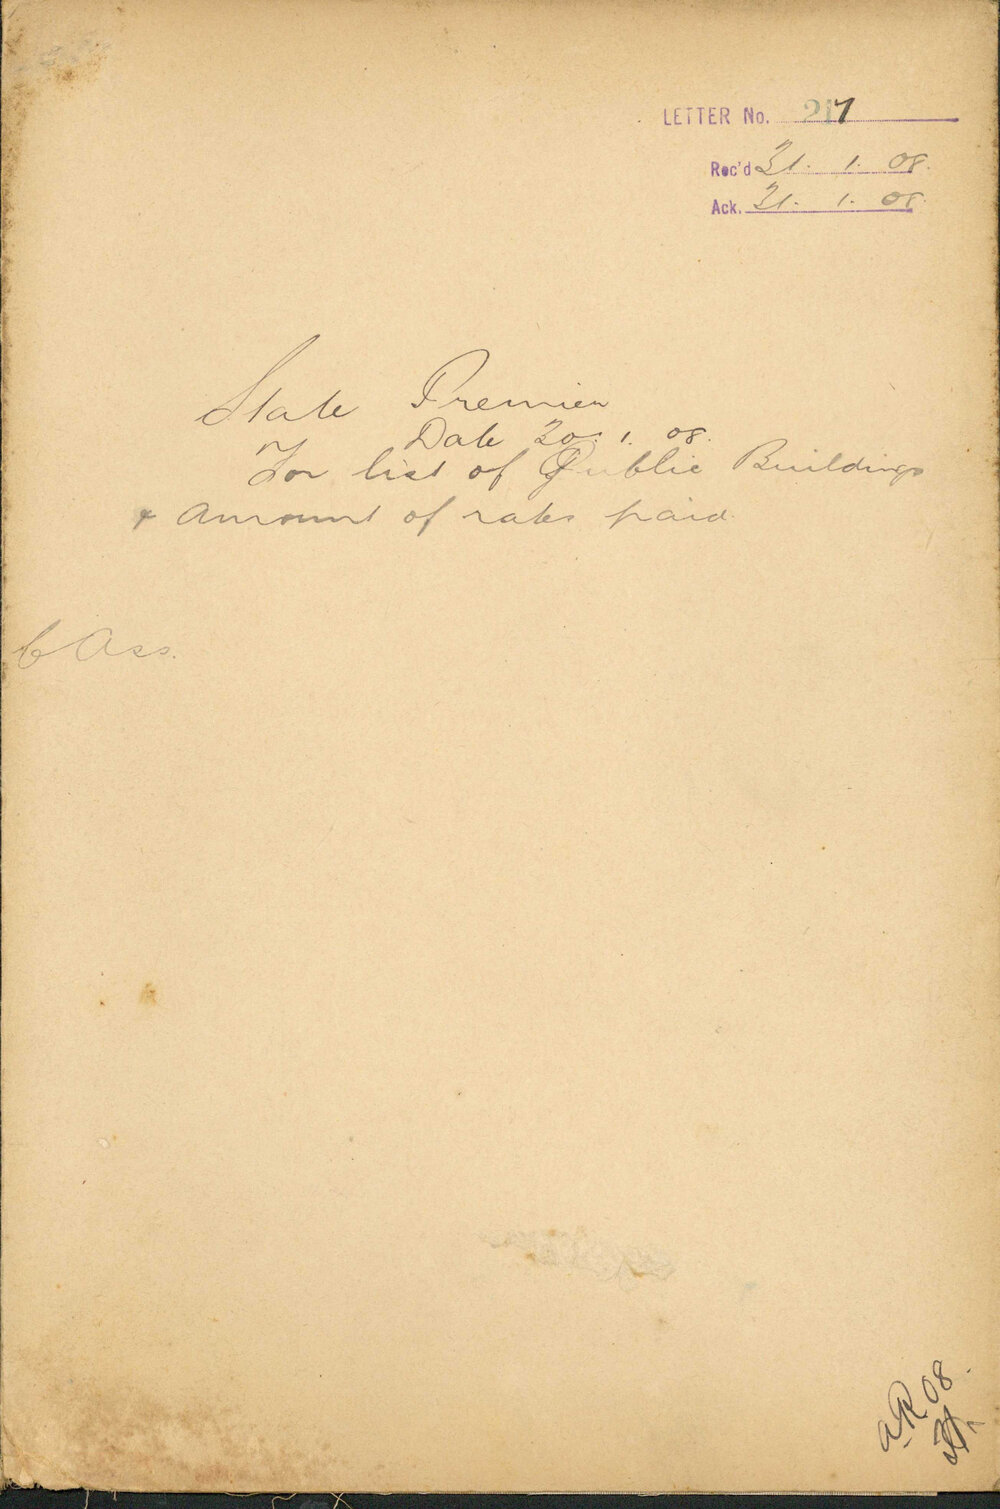 LETTER No. 217
Rec'd 31. 1. 08.
Ack. 31. 1. 08.
State Premier
Date 30. 1. 08.
For list of Public Buildings
& amount of rates paid.
C Ass.
08